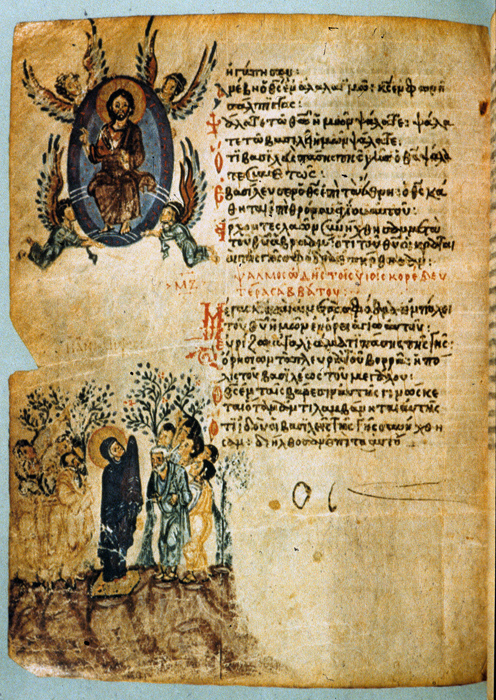 ἠγάπησεν:
Ἀνέβη ὁ θς ἐν ἀλαλαγμῶ: κς ἐν φωνῆ
σάλπιγγος:
Ψάλατε τῶ θω ἡμῶν ψάλατε: ψάλα
τε τῶ βασιλεῖ ἡμῶν ψάλατε:
Ὅτι βασιλεὺς πάσης τῆς γῆς ὁ θς ψάλα
τε συνετῶς:
Ἐβασίλευσεν ὁ θς ἐπὶ τὰ ἔθνη: ὁ θς κά
θηται ἐπὶ θρόνου ἁγίου αὐτοῦ:
Ἄρχοντες λαῶν συνήχθησαν μετὰ
τοῦ θυ ἀβραάμ: ὅτι τοῦ θυ οἱ κραταιοὶ
τῆς γῆς σφόδρα ἐπήρθησαν:
ΜΖ ψαλμὸς ὠδῆς τοῖς υἱοῖς κορὲ δευ
τέρα σαββάτου:
Μέγας κς καὶ αἰνετὸς σφόδρα: ἐν πόλει
τοῦ θυ ἡμῶν ἐν ὄρει ἁγίω αὐτοῦ:
Εὐρίζω ἀγαλλιάματι πάσης τῆς γῆς:
ὄρη σιὼν τὰ πλευρὰ τοῦ βορρᾶ: ἡ πό
λις τοῦ βασιλέως τοῦ μεγάλου:
Ὁ θς ἐν ταῖς βάρεσιν αὐτῆς γινώσκε
ται ὅταν ἀντιλαμβάνηται αὐτῆς
Ὅτι ἰδοὺ οἱ βασιλεῖς τῆς γῆς συνήχθη
σαν: διήλθοσαν ἐπὶ τὸ αὐτό